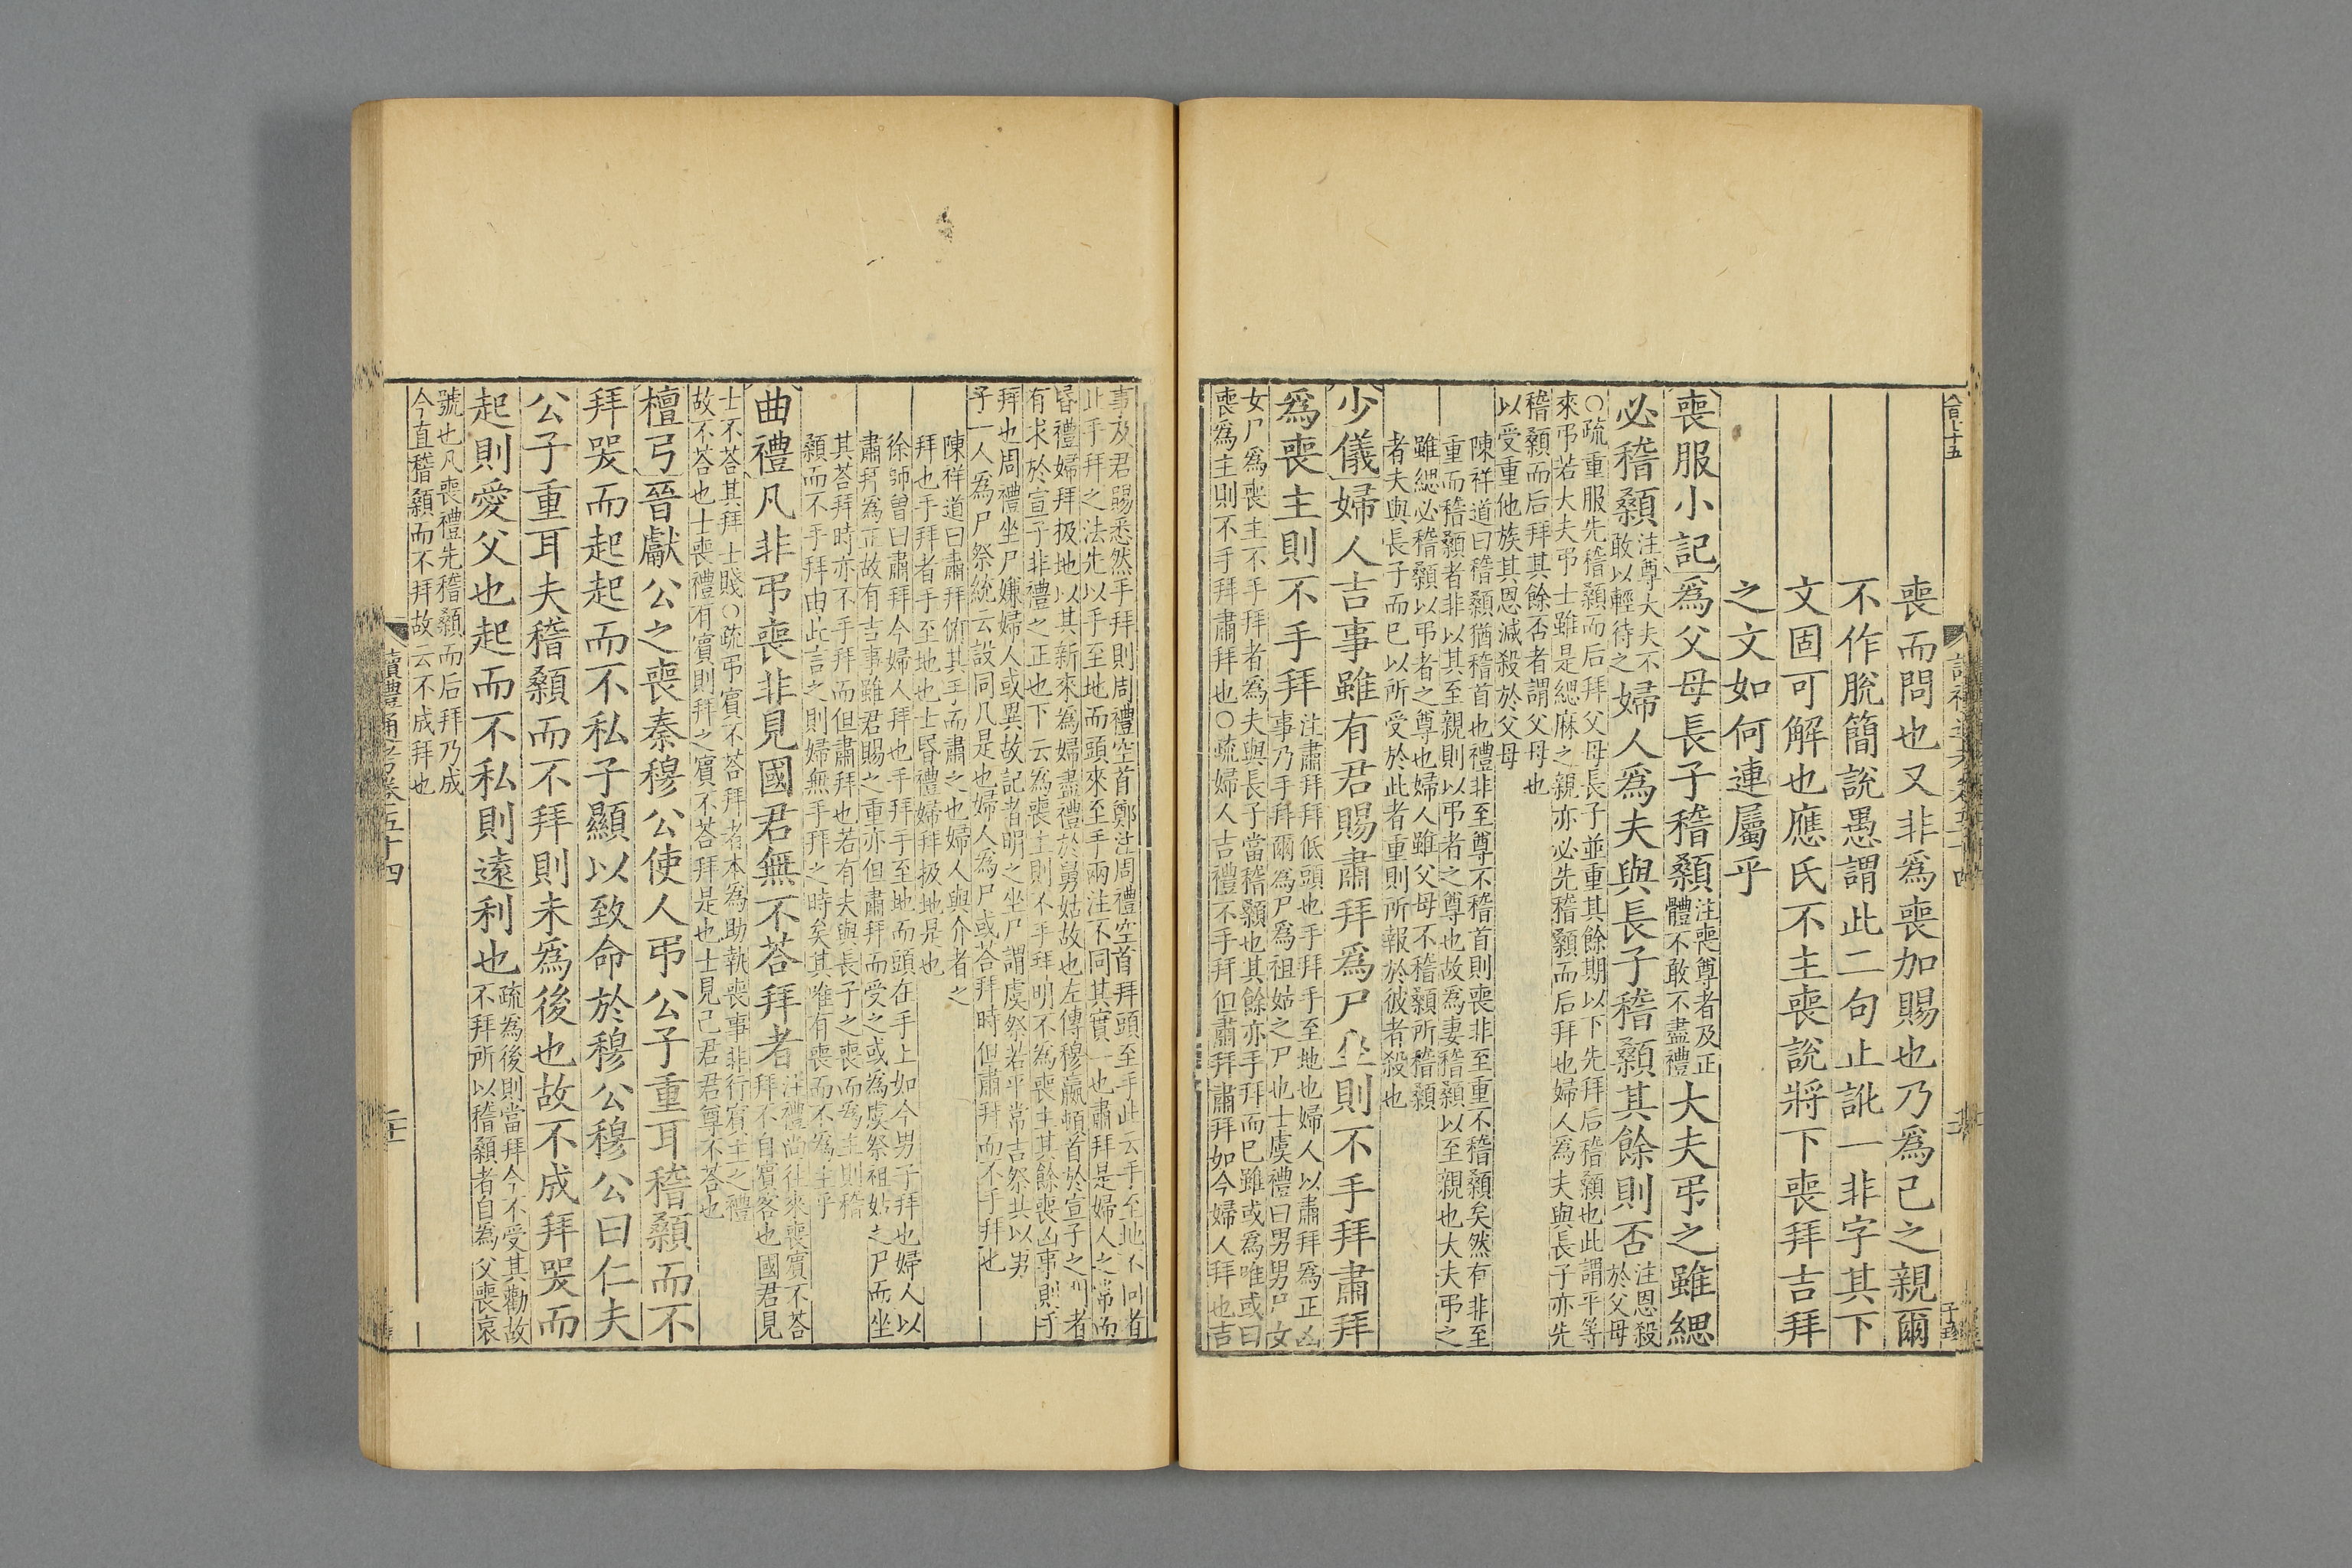 喪而問也又非爲喪加賜也乃爲已之親爾
不作脫簡說愚謂此二句止訛一非字其下
文固可解也應氏不主喪說將下喪拜吉拜
之文如何連屬乎
喪服小記爲父母長子稽顙
注喪尊者及正
體不敢不盡禮
大夫弔之雖緦
必稽顙
注尊大夫不
敢以輕待之
婦人爲夫與長子稽顙其餘則否
注恩殺
於父母
○疏重服先稽顙而后拜父母長子並重其餘期以下先拜后稽顙也此謂平等
來弔若大夫弔士雖是緦麻之親亦必先稽顙而后拜也婦人爲夫與長子亦先
稽顙而后拜其餘否者謂父母也
以受重他族其恩減殺於父母
陳祥道曰稽顙猶稽首也禮非至尊不稽首則喪非至重不稽顙矣然有非至
重而稽顙者非以其至親則以弔者之尊也故爲妻稽顙以至親也大夫弔之
雖緦必稽顙以弔者之尊也婦人雖父母不稽顙所稽顙
者夫與長子而已以所受於此者重則所報於彼者殺也
少儀婦人吉事雖有君賜肅拜爲尸坐則不手拜肅拜
爲喪主則不手拜
注肅拜拜低頭也手拜手至地也婦人以肅拜爲正凶
事乃手拜爾爲尸爲祖姑之尸也士虞禮曰男男尸女
女尸爲喪主不手拜者爲夫與長子當稽顙也其餘亦手拜而已雖或爲唯或曰
喪爲主則不手拜肅拜也○疏婦人吉禮不手拜但肅拜肅拜如今婦人拜也吉
事及君賜悉然手拜則周禮空首鄭注周禮空首拜頭至手此云手至地不同者
止手拜之法先以手至地而頭來至手兩注不同其實一也肅拜是婦人之常而
昏禮婦拜扱地以其新來爲婦盡禮於舅姑故也左傳穆嬴頓首於宣子之門者
有求於宣子非禮之正也下云爲喪主則不手拜明不爲喪主其餘喪凶事則手
拜也周禮坐尸嫌婦人或異故記者明之坐尸謂虞祭若平常吉祭共以男
子一人爲尸祭統云設同几是也婦人爲尸或荅拜時但肅拜而不手拜也
陳祥道曰肅拜俯其手而肅之也婦人與介者之
拜也手拜者手至地也士昏禮婦拜扱地是也
徐師曾曰肅拜今婦人拜也手拜手至地而頭在手上如今男子拜也婦人以
肅拜爲正故有吉事雖君賜之重亦但肅拜而受之或爲虞祭祖姑之尸而坐
其荅拜時亦不手拜而但肅拜也若有夫與長子之喪而爲主則稽
顙而不手拜由此言之則婦無手拜之時矣其唯有喪而不爲主乎
曲禮凡非弔喪非見國君無不荅拜者
注禮尚往來喪賓不荅
拜不自賓客也國君見
士不荅其拜士賤○疏弔賓不荅拜者本爲助執喪事非行賓主之禮
故不荅也士喪禮有賓則拜之賓不荅拜是也士見已君君尊不荅也
檀弓晉獻公之喪秦穆公使人弔公子重耳稽顙而不
拜哭而起起而不私子顯以致命於穆公穆公曰仁夫
公子重耳夫稽顙而不拜則未爲後也故不成拜哭而
起則愛父也起而不私則遠利也
疏爲後則當拜今不受其勸故
不拜所以稽顙者自爲父喪哀
號也凡喪禮先稽顙而后拜乃成
今直稽顙而不拜故云不成拜也
讀禮通考卷五十四